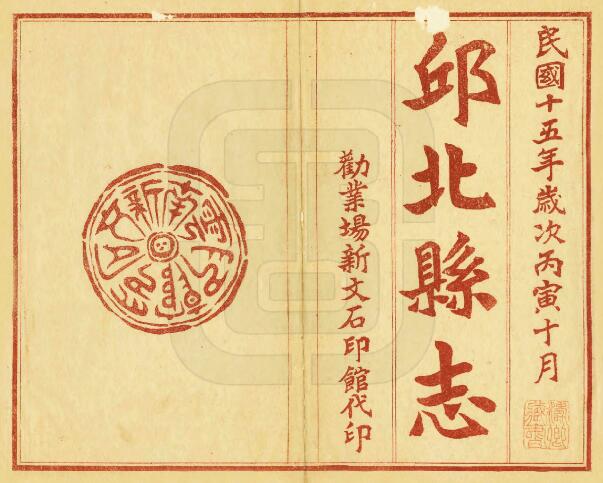 民國十五年歲次丙寅十月
邱北縣志
勸業場新文石印館代印